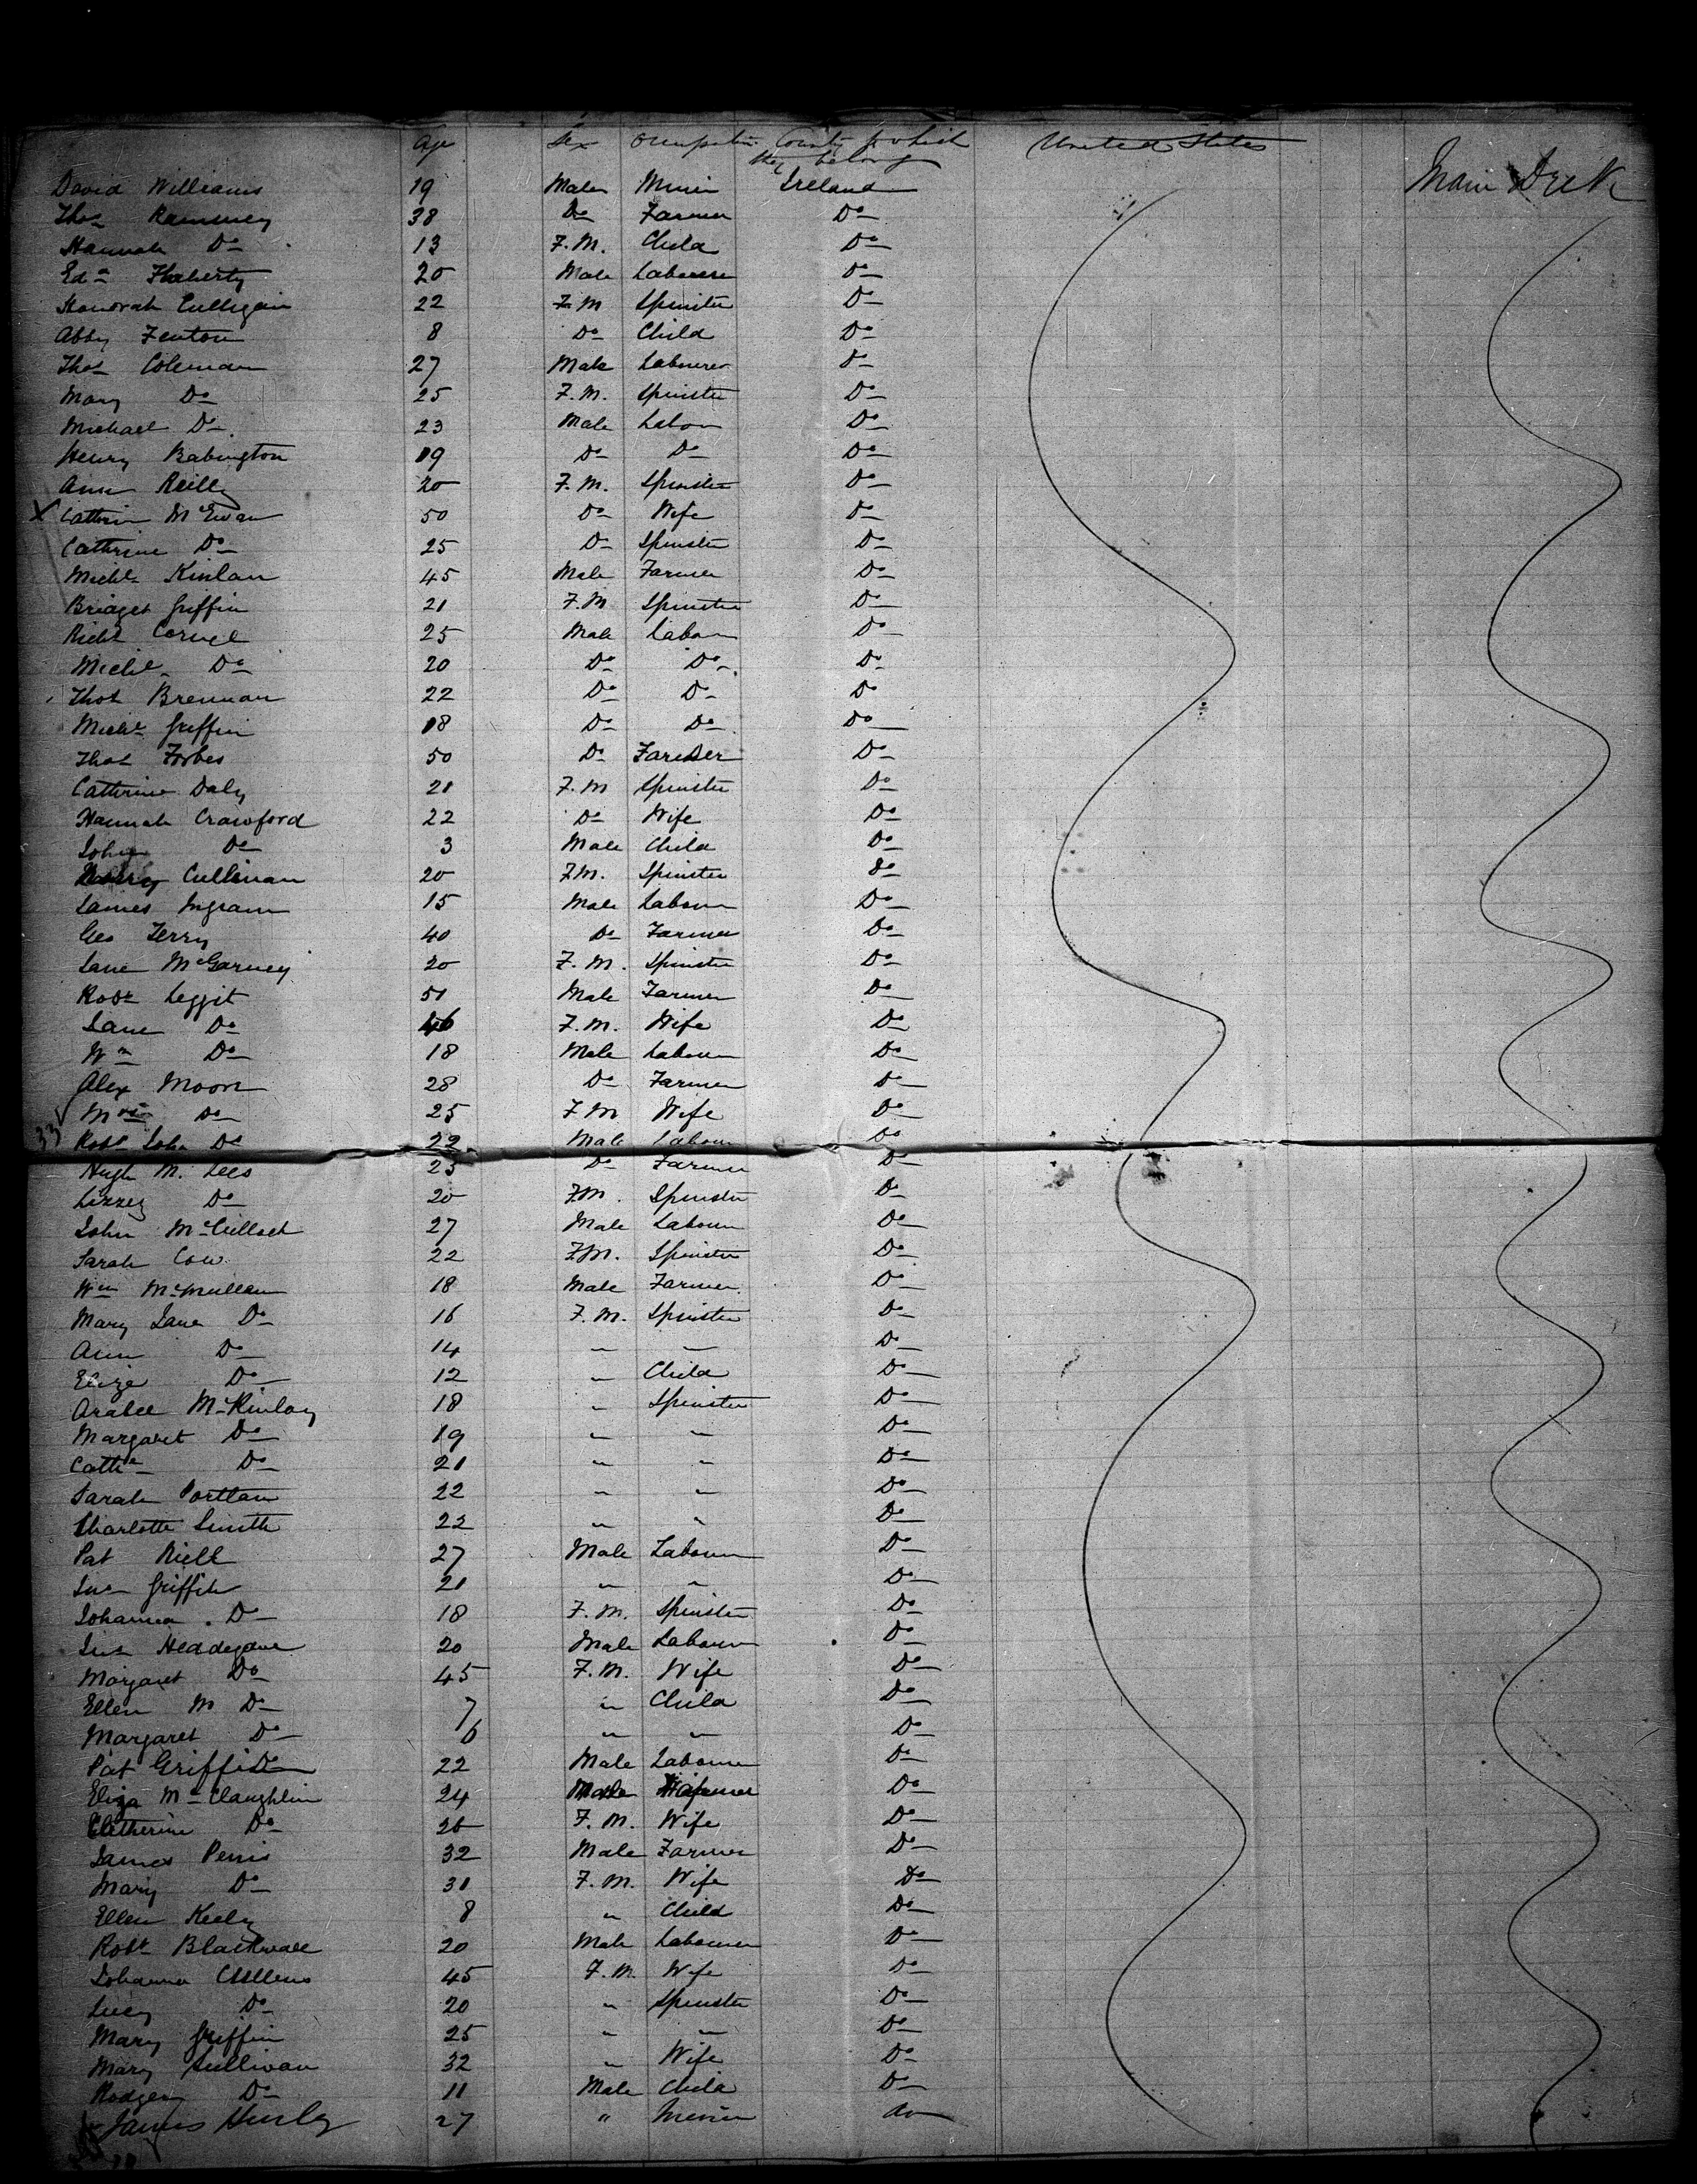 Age Sex Occupation County to which they belong United States
David Williams 19 Male Miner Ireland Main Deck
Thos Ramsney 38 Do Farmer Do
Hannah Do 13 F.M. Child Do
Edn Flaherty 20 Male Labourer Do
Honorah Culligan 22 F.M Spinster Do
Abby Fenton 8 Do Child Do
Thos Coleman 27 Male Labourer Do
Mary Do 25 F.M. Spinster Do
Michael Do 23 Male Labour Do
Henry Babington 19 Do Do Do
Ann Reilly 20 F.M. Spinster Do
X Cathrin McEwan 50 Do Wife Do
Cathrine Do 25 Do Spinster Do
Michl Kinlan 45 Male Farmer Do
Bridget Griffin 21 F.M Spinster Do
Richd 25 Male Labour Do
Michl Do 20 Do Do Do
Thos Brennan 22 Do Do Do
Michl Griffin 18 Do Do Do
Thos Forbes 50 Do Farmer Do
Cathrine Daly 21 F.M Spinster Do
Hannah Crawford 22 Do Wife Do
John Do 3 Male Child Do
Cullinan 20 F.M. Spinster Do
James Ingram 15 Male Labour Do
Geo Terry 40 Do Farmer Do
Jane McGarvey 20 F.M. Spinster Do
Robt Leggit 51 Male Farmer Do
Jane Do 46 F.M. Wife Do
Wm Do 18 Male Labour Do
Alex Moore 28 Do Farmer Do
Mrs Do 25 F.M Wife Do
33 Robt John Do 22 Male Labour Do
Hugh M. Lees 23 Do Farmer Do
Lizzey Do 20 F.M. Spinster Do
John McCulloch 27 Male Labour Do
Sarah Cow 22 F.M. Spinster Do
Wm McMullan 18 Male Farmer Do
Mary Jane Do 16 F.M. Spinster Do
Ann Do 14 " " Do
Eliza Do 12 " Child Do
Arabel McKinlay 18 " Spinster Do
Margaret Do 19 " " Do
Cathe Do 21 " " Do
Sarah Portlan 22 " " Do
Charlotte Smith 22 " " Do
Pat Riell 27 Male Labour Do
Jno Griffith 21 " " Do
Johanna Do 18 F.M. Spinster Do
Jno 20 Male Labour Do
Margaret Do 45 F.M. Wife Do
Ellen M Do 7 " Child Do
Margaret Do 6 " " Do
Pat Griffith 22 Male Labourer Do
Eliza McClaughlin 24 Male Do
Catherine Do 26 F.M. Wife Do
James Perris 32 Male Farmer Do
Mary Do 31 F.M. Wife Do
Ellen Keely 8 " Child Do
Robt Blackwall 20 Male Labourer Do
Johanna Cullens 45 F.M. Wife Do
Lucy Do 20 " Spinster Do
Mary Griffin 25 " " Do
Mary Sullivan 32 " Wife Do
Rodger Do 11 Male Child Do
James Hurley 27 " Miner do